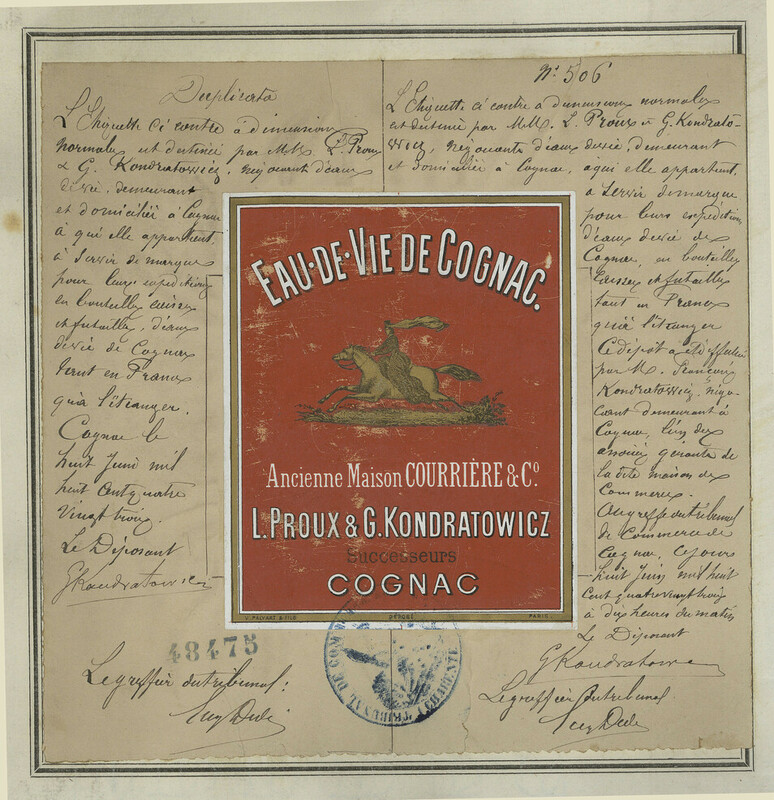 Duplicata
L'Etiquette ci contre à dimensions
normales est destinée par MM. L. Proux
& G. Kondratowicz, négociants d'eaux
de vie, demeurant
et domiciliés à Cognac
à qui elle appartient,
à servir de marque
pour leurs expéditions
en bouteilles caisses
et futailles, d'eaux
de vie de Cognac
tant en France
qu'à l'étranger.
Cognac le
huit Juin mil
huit cent quatre
vingt trois.
Le Déposant
GKondratowicz
Le greffier du tribunal:
N° 506
L'Etiquette ci contre à dimensions normales
est destinée par MM. L. Proux et G. Kondrato-
wicz, négociants d'eaux de vie, demeurant
et domiciliés à Cognac, à qui elle appartient,
à servir de marque
pour leurs expéditions
d'eaux de vie de
Cognac, en bouteilles
caisses et futailles
tant en France
qu'à l'étranger
Ce dépôt a été effectué
par M. François
Kondratowicz, négo-
ciant demeurant à
Cognac, l'un des
associés gérants de
la dite maison de
Commerce.
Au greffe du tribunal
de Commerce de
Cognac, ce jour
huit Juin mil huit
cent quatre vingt trois
à dix heures du matin
Le Déposant
GKondratowicz
Le greffier du tribunal
EAU·DE·VIE DE COGNAC.
Ancienne Maison COURRIÈRE & Cº.
L. PROUX & G. KONDRATOWICZ
Successeurs
COGNAC
DÉPOSÉ
PARIS.
48475
TRIBUNAL DE COMM
(CHARENTE)